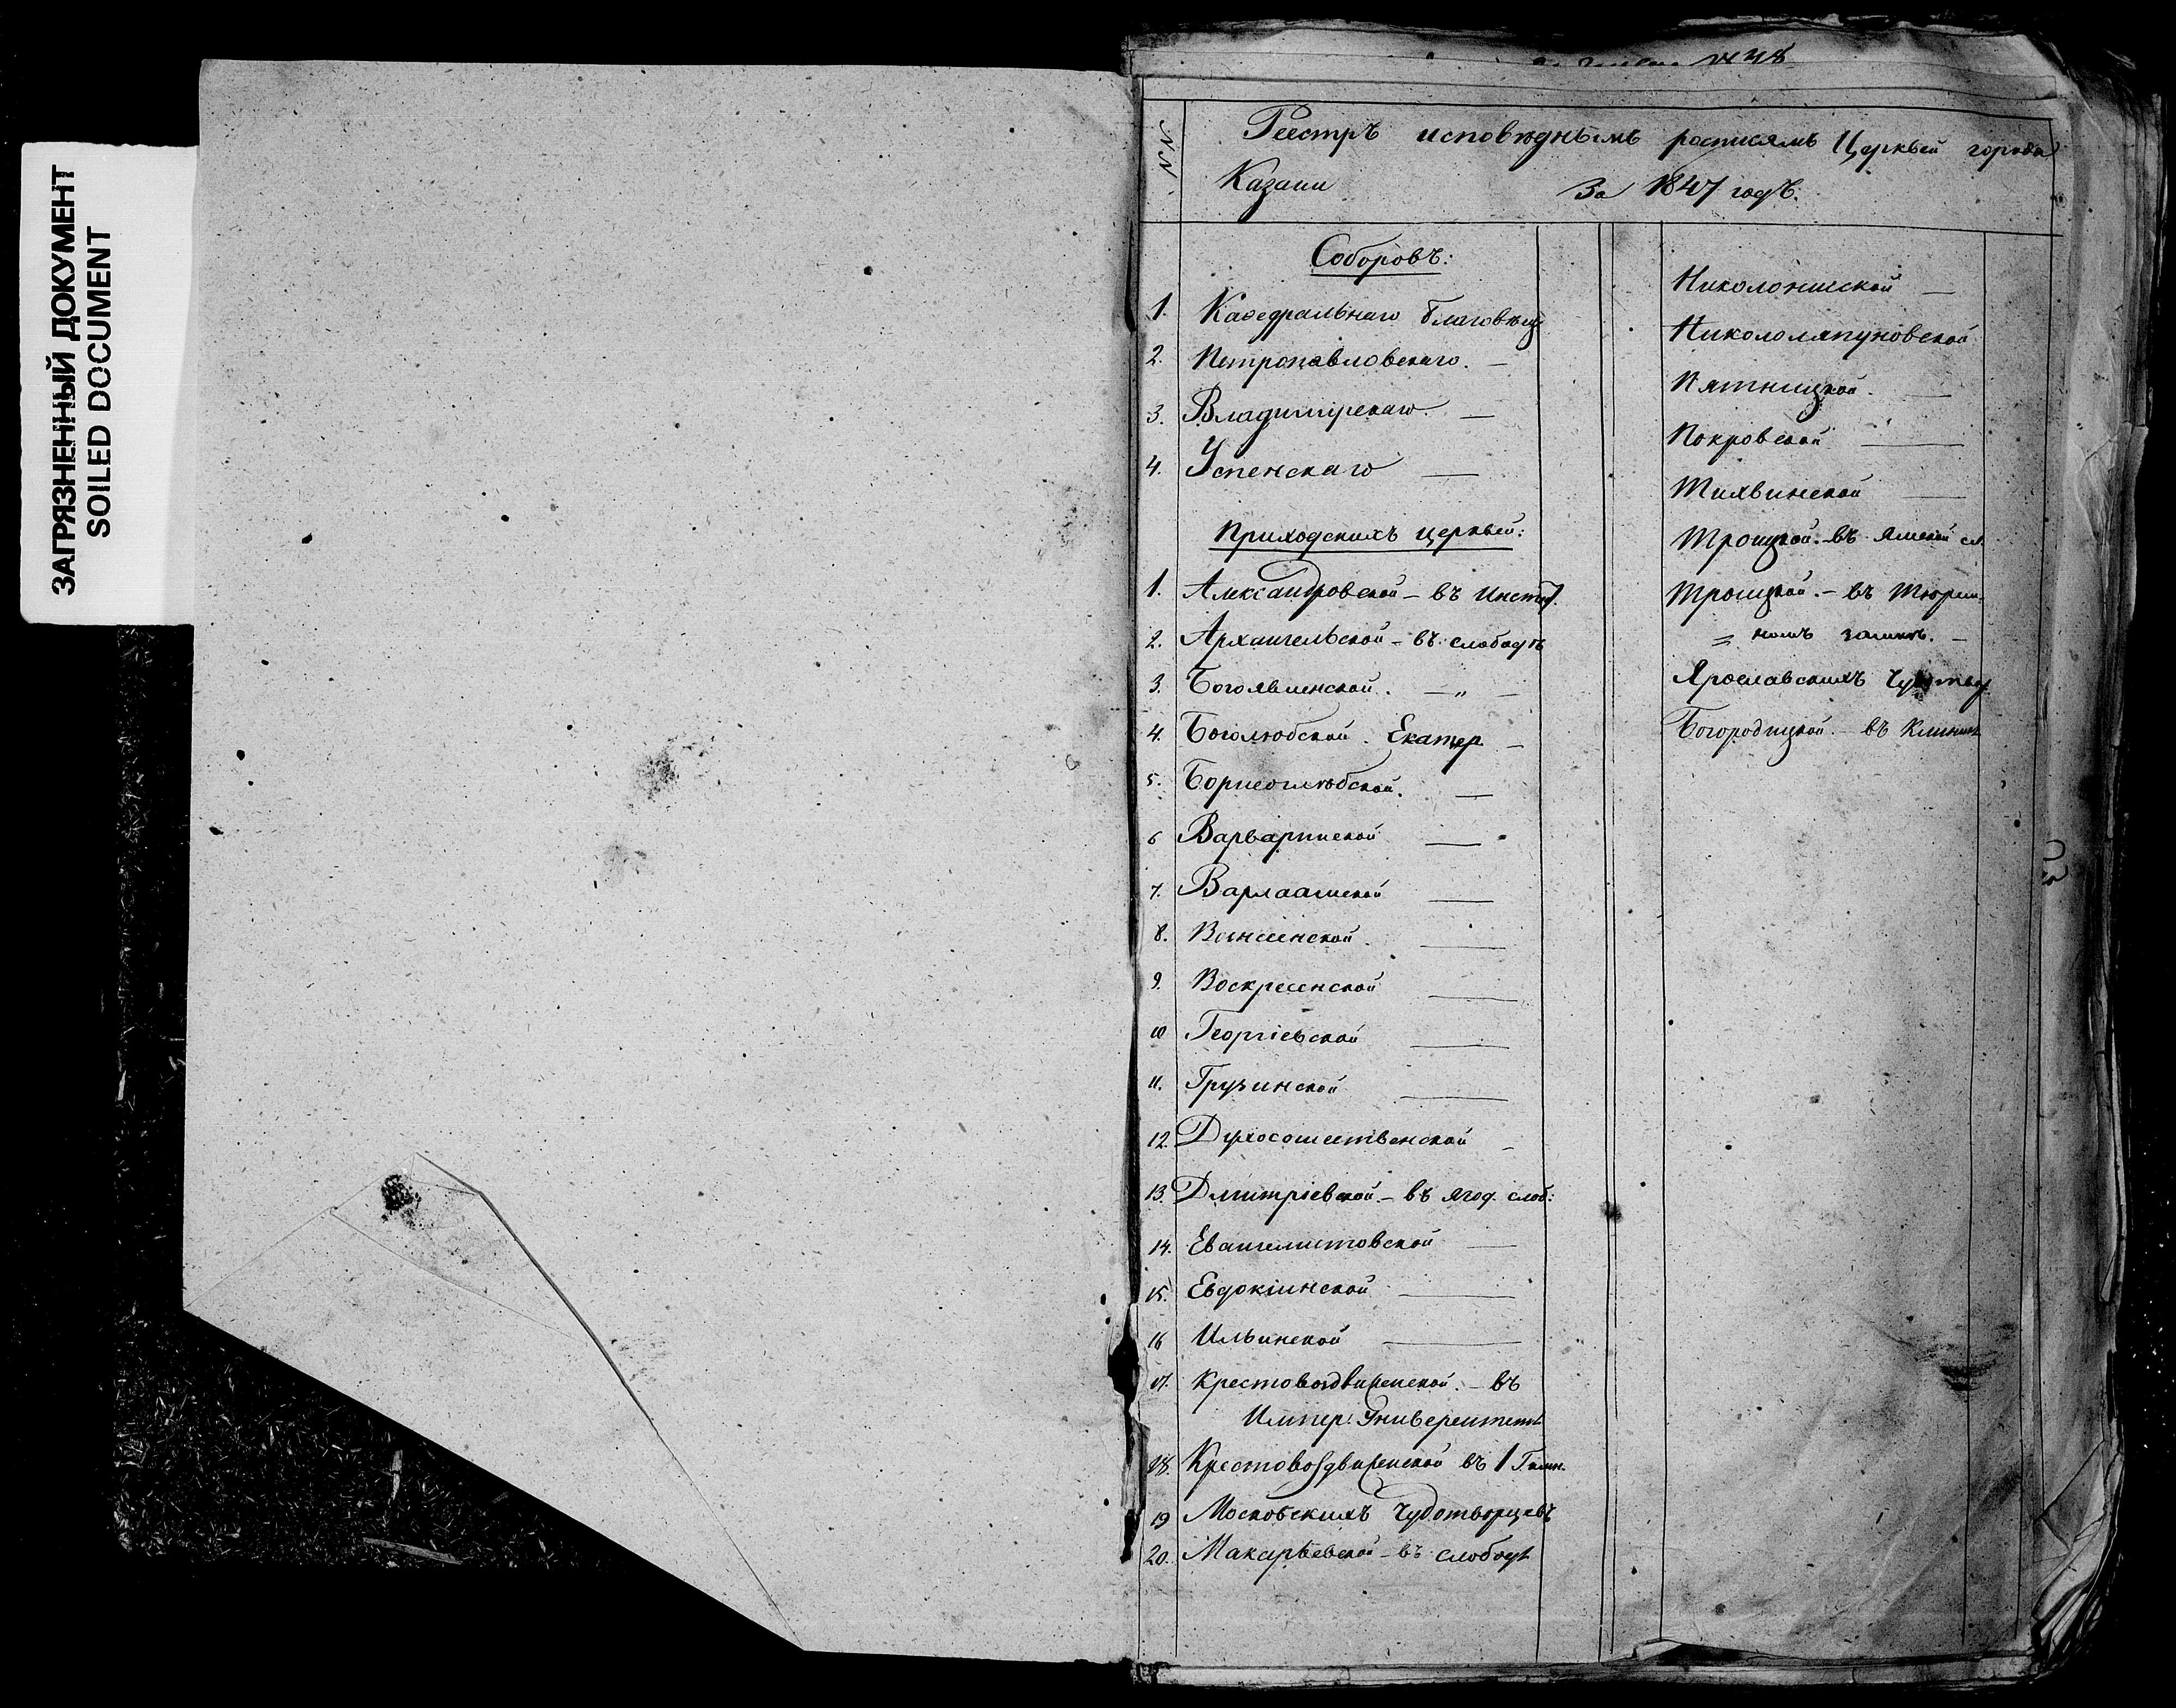 ЗАГРЯЗНЕННЫЙ ДОКУМЕНТ
SOILED DOCUMENT
№ 38
NN
Реестръ исповѣднымъ росписямъ Церквей города
Казани За 1847 годъ.
Соборовъ:
1. Каѳедральнаго Благовѣщ
2. Петропавловскаго. —
3. Владимірскаго. —
4. Успенскаго —
Приходскихъ церквей:
1. Александровской — въ Инстит.
2. Архангельской — въ слободѣ
3. Богоявленской. — „ —
4. Боголюбской. Екатер —
5. Борисоглѣбской. —
6 Варваринской —
7. Варлаамской —
8. Вознесенской. —
9. Воскресенской —
10 Георгіевской —
11. Грузинской —
12. Духосошественской —
13. Дмитріевской — въ Ягод. слоб:
14. Евангелистовской —
15. Евдокіинской —
16 Ильинской —
17. Крестовоздвиженской. — въ
Импер. Университетѣ
18. Крестовоздвиженской въ 1 Гимн.
19 Московскихъ Чудотворцевъ
20. Макарьевской — въ слободѣ
Николонисской —
Никололяпуновской
Пятницкой. —
Покровской —
Тихвинской —
Троицкой. — въ Ямской сл.
Троицкой. — въ Тюрем.
= номъ замкѣ. —
Ярославскихъ Чудотвор.
Богородицкой — въ Клиникѣ